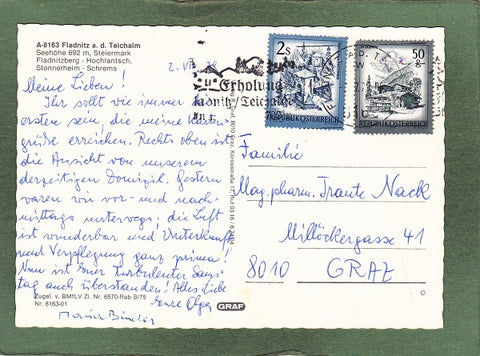 A-8163 Fladnitz a. d. Teichalm
Seehöhe 692 m, Steiermark
Fladnitzberg - Hochlantsch,
Stonnerheim - Schrems
2. VIII.
Erholung
Fladnitz/Teichalm
2 S
REPUBLIK ÖSTERREICH
50 g
REPUBLIK ÖSTERREICH
Meine Lieben!
Ihr sollt wie immer die
ersten sein, die meine Karten-
grüße erreichen. Rechts oben ist
die Ansicht von unserem
derzeitigen Domizil. Gestern
waren wir vor- und nach-
mittags unterwegs; die Luft
ist wunderbar und Unterkunft
und Verpflegung ganz prima!
Nun ist Euer turbulenter Sams-
tag auch überstanden! Alles Liebe
Eure Olga
Familie
Mag. pharm. Traute Nack
Millöckergasse 41
8010 GRAZ
Zugel. v. BMfLV Zl. Nr. 6570-Rab B/75
Nr. 8163-01
GRAF